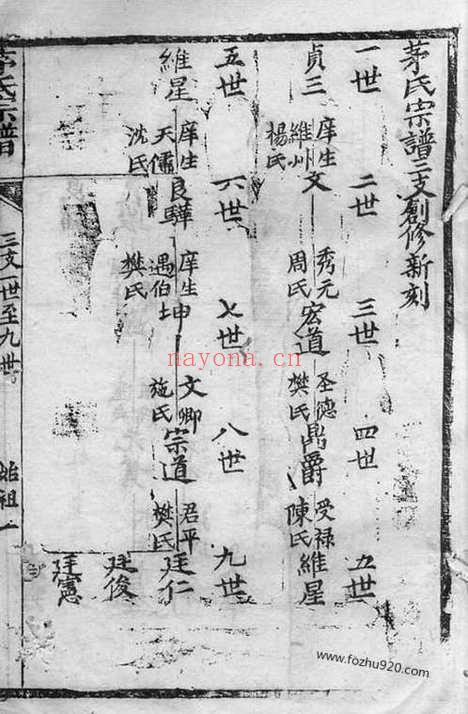 茅氏宗譜三支創修新刻
一世 二世 三世 四世 五世
貞三 庠生 維州 楊氏 文 秀元 周氏 宏道 圣德 樊氏 鼎爵 受禄 陳氏 維星
五世 六世 七世 八世 九世
維星 庠生 天儒 沈氏 良驊 庠生 遇伯 樊氏 坤 文卿 施氏 宗道 君平 樊氏 廷仁
廷俊
廷憲
茅氏宗譜 三支世至九世 始祖一
nayona.cn
www.fozhu920.com